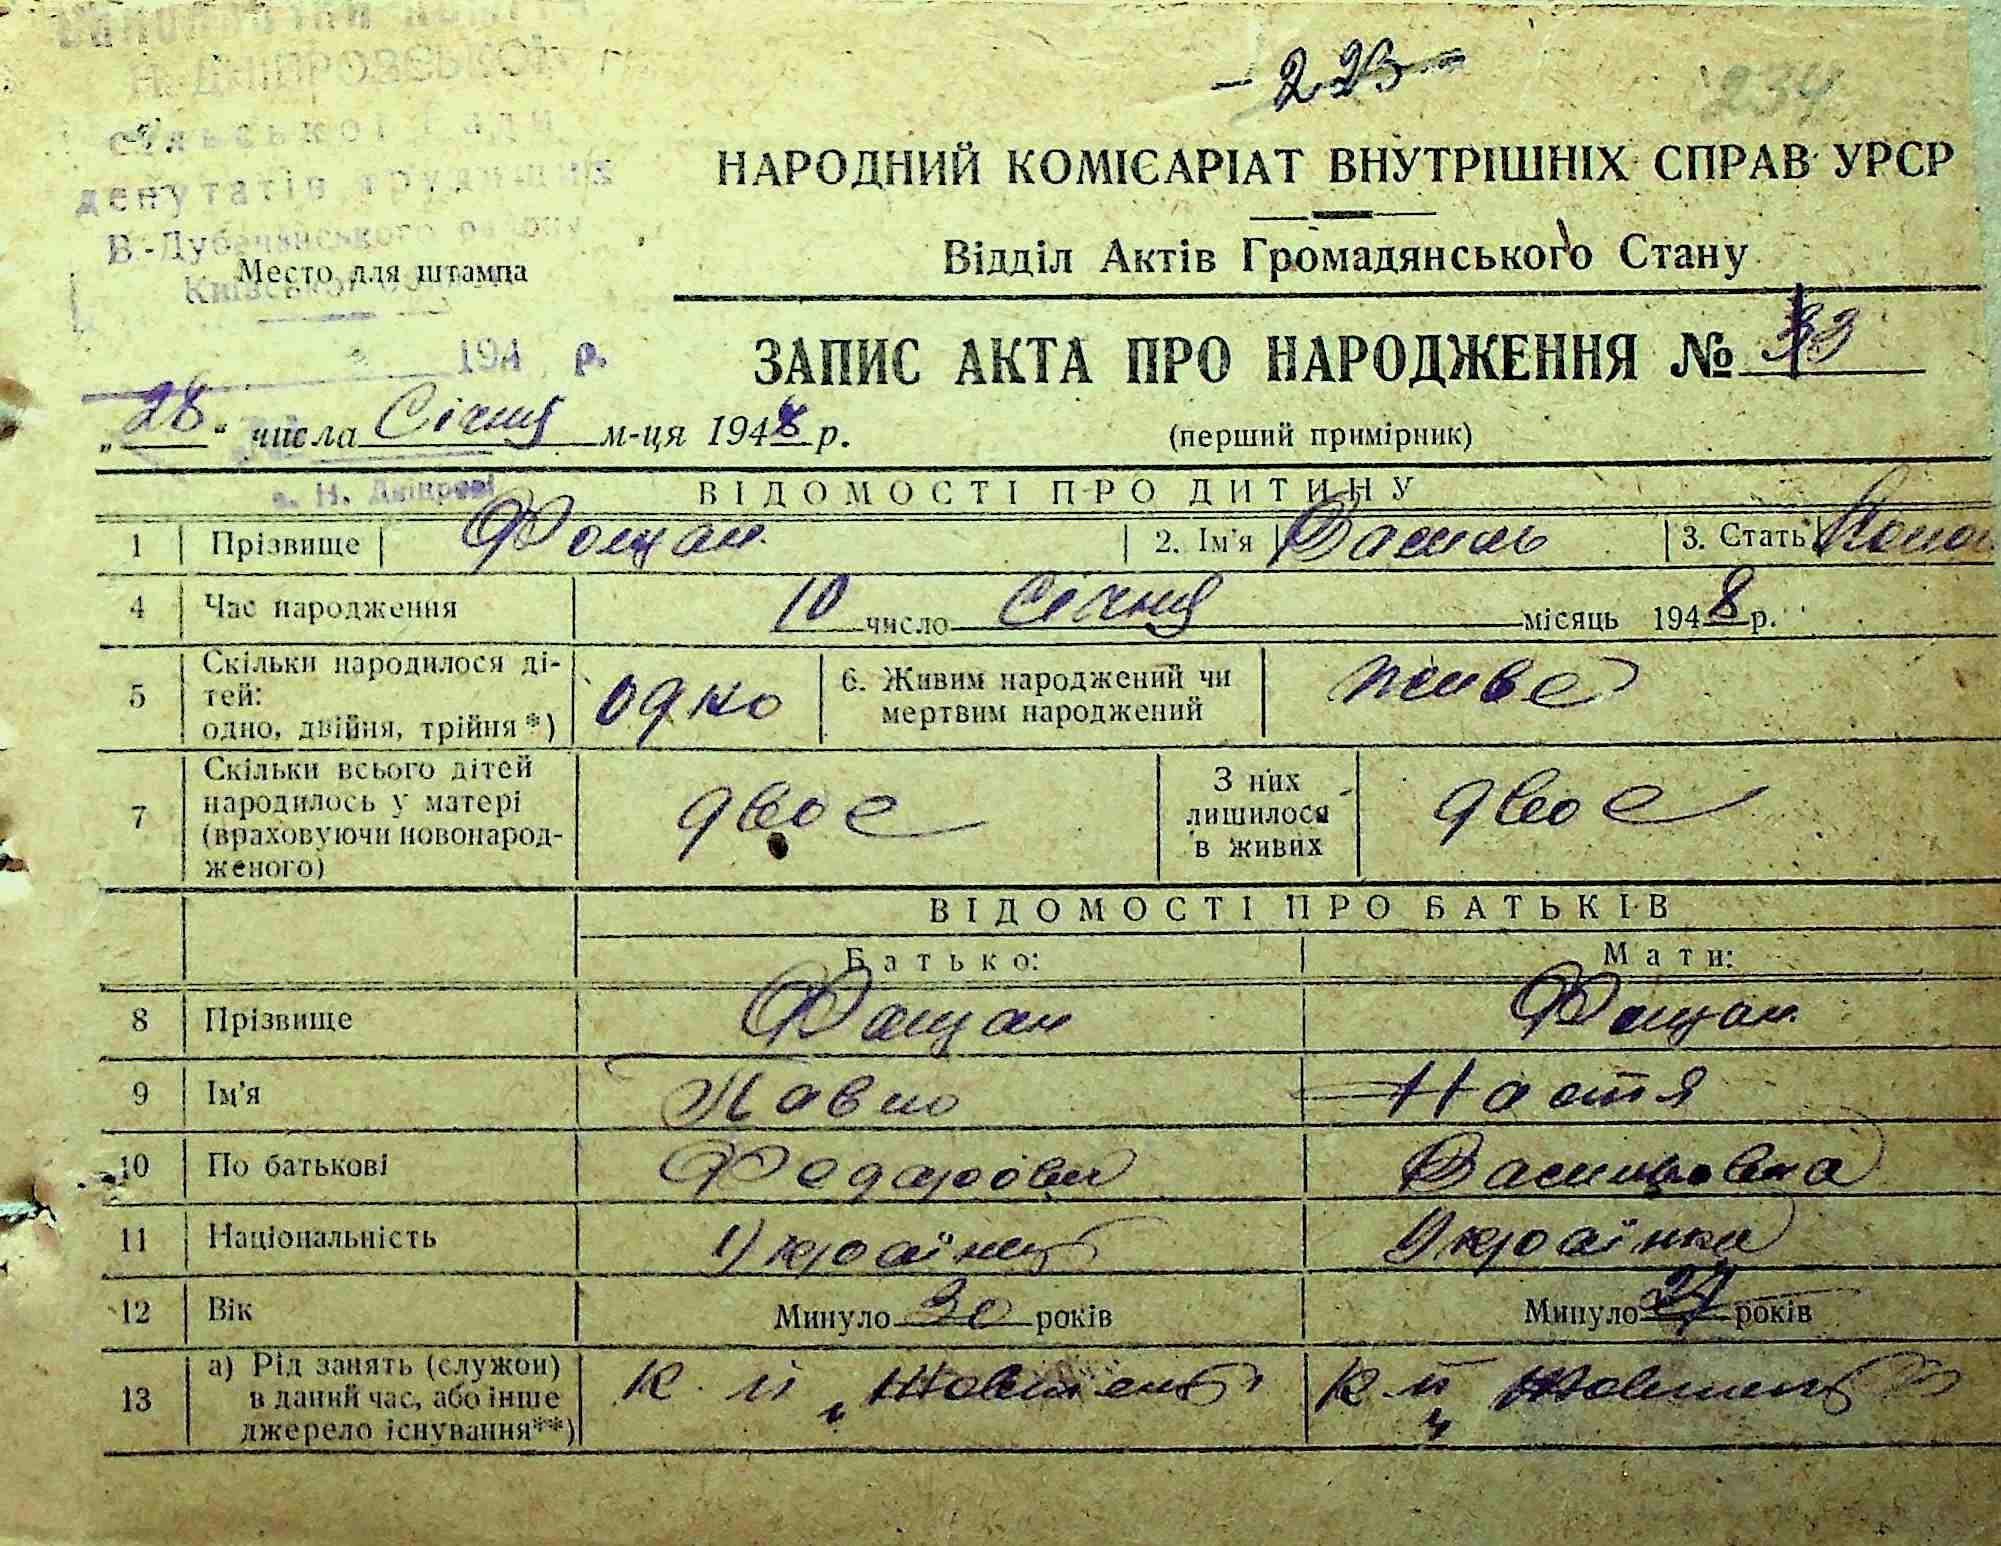 Н. ДНІПРОВСЬКОЇ
сільської Ради
депутатів трудящих
В.-Дубечанського району
Київської
Место для штампа
194 р.
с. Н. Дніпрові
-223-
234
НАРОДНИЙ КОМІСАРІАТ ВНУТРІШНІХ СПРАВ УРСР
Відділ Актів Громадянського Стану
ЗАПИС АКТА ПРО НАРОДЖЕННЯ №
„28“ числа Січня м-ця 1948 р.
(перший примірник)
ВІДОМОСТІ ПРО ДИТИНУ
1 Прізвище Фощан 2. Ім'я Василь 3. Стать
4 Час народження 10 число Січня місяць 1948 р.
5 Скільки народилося ді-
тей:
одно, двійня, трійня*) одно
6. Живим народжений чи
мертвим народжений живе
7 Скільки всього дітей
народилось у матері
(враховуючи новонарод-
женого) двоє
З них
лишилося
в живих двоє
ВІДОМОСТІ ПРО БАТЬКІВ
Батько: Мати:
8 Прізвище Фощан Фощан
9 Ім'я Павло Настя
10 По батькові Федорович Василівна
11 Національність Українец Українка
12 Вік Минуло 30 років Минуло 27 років
13 а) Рід занять (служби)
в даний час, або інше
джерело існування**) К. й „Жовтень“ К. й „Жовтень“